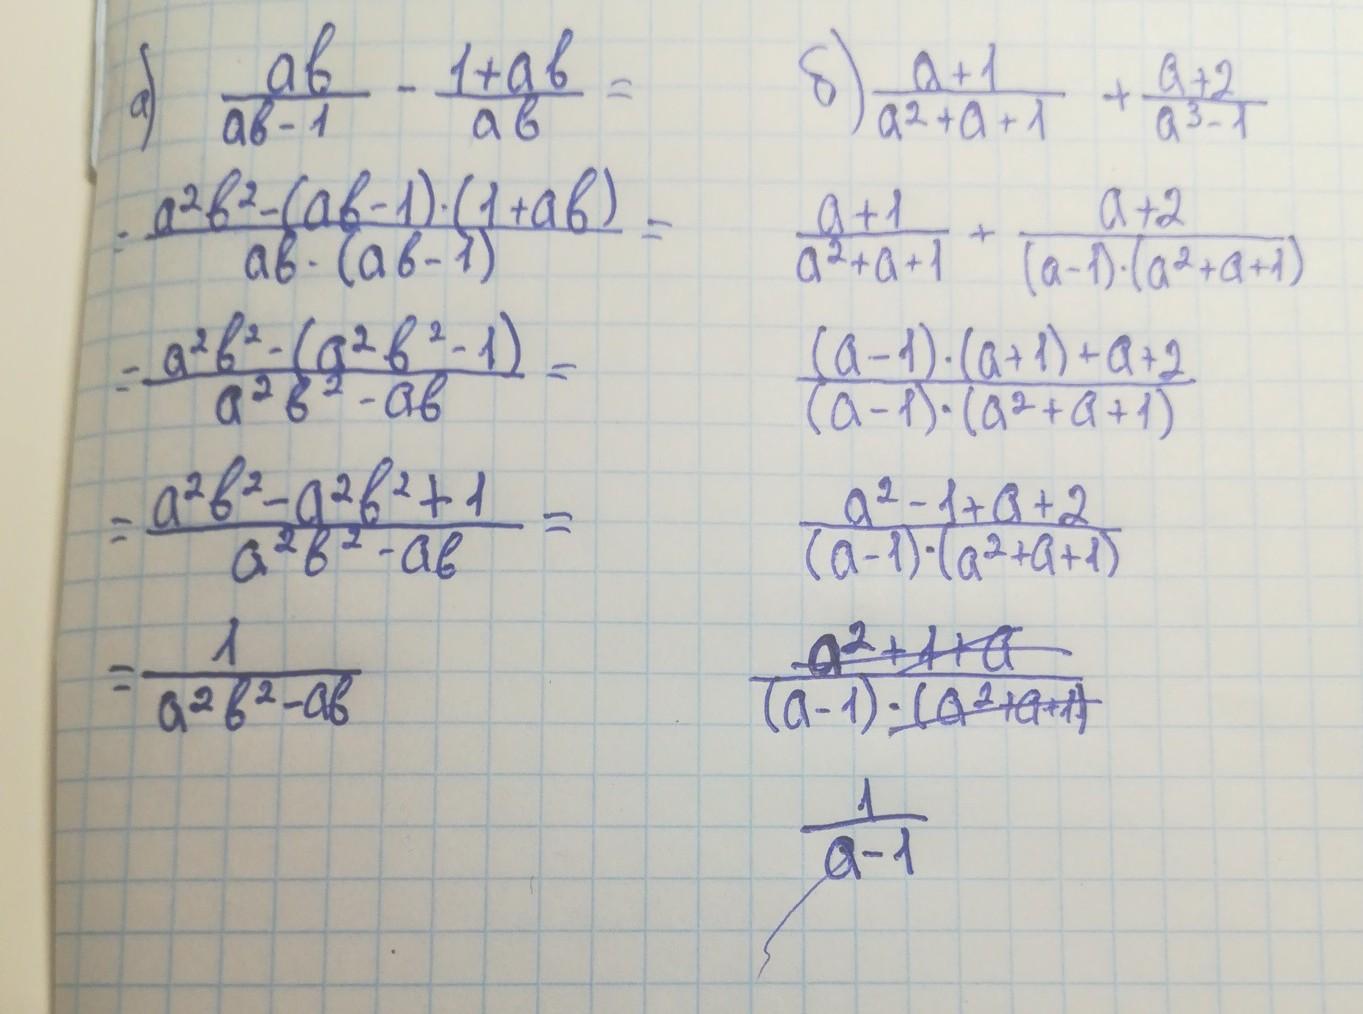 а) ab/(ab-1) - (1+ab)/(ab) =
= (a²b²-(ab-1)·(1+ab))/(ab·(ab-1)) =
= (a²b²-(a²b²-1))/(a²b²-ab) =
= (a²b²-a²b²+1)/(a²b²-ab) =
= 1/(a²b²-ab)
б) (a+1)/(a²+a+1) + (a+2)/(a³-1)
(a+1)/(a²+a+1) + (a+2)/((a-1)·(a²+a+1))
((a-1)·(a+1)+a+2)/((a-1)·(a²+a+1))
(a²-1+a+2)/((a-1)·(a²+a+1))
(a²+1+a)/((a-1)·(a²+a+1))
1/(a-1)